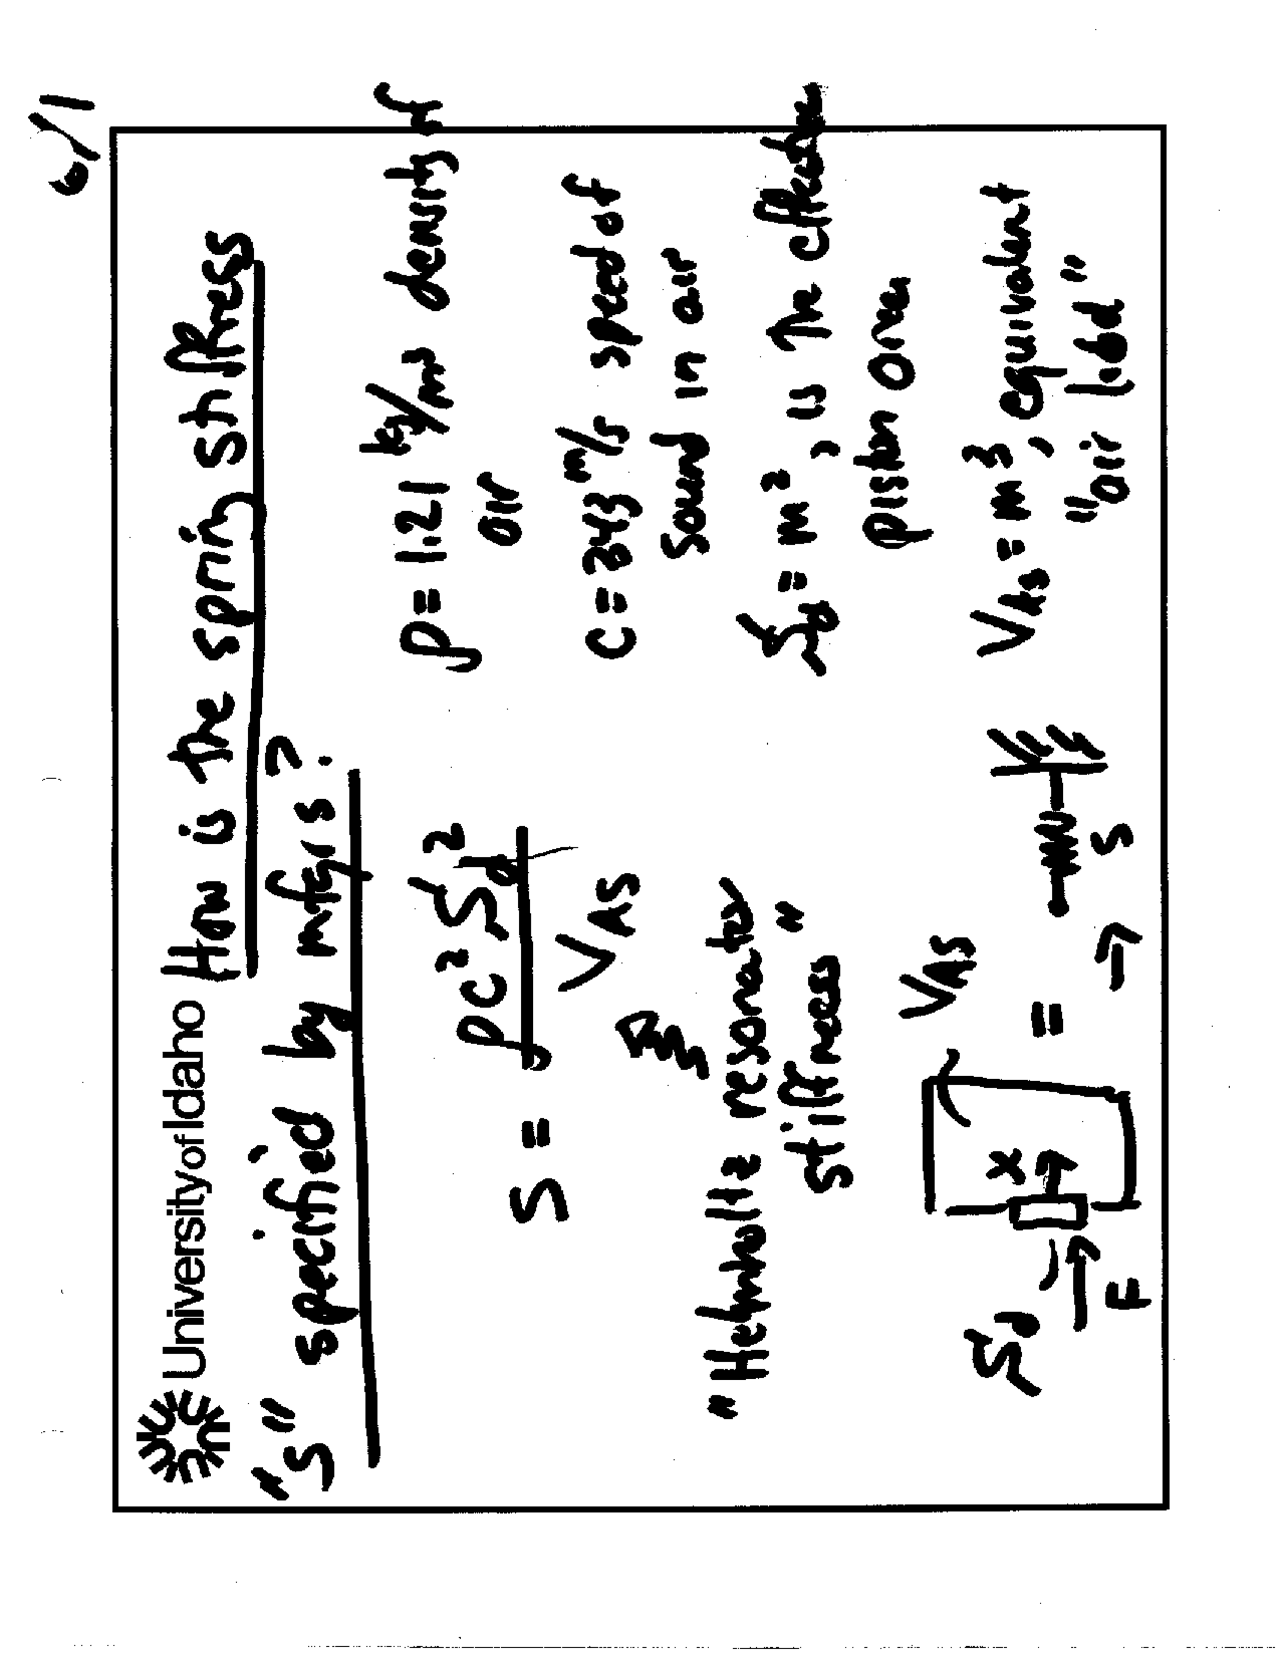 6/1
University of Idaho
How is the spring stiffness
"S" specified by mfgrs?
S = ρc²S_d² / V_AS
"Helmholtz resonator
stiffness"
S_d
F
x
V_AS
=
→
S
ρ = 1.21 kg/m³ density of
air
c = 343 m/s speed of
sound in air
S_d = m², is the effective
piston area
V_AS = m³, equivalent
"air load"